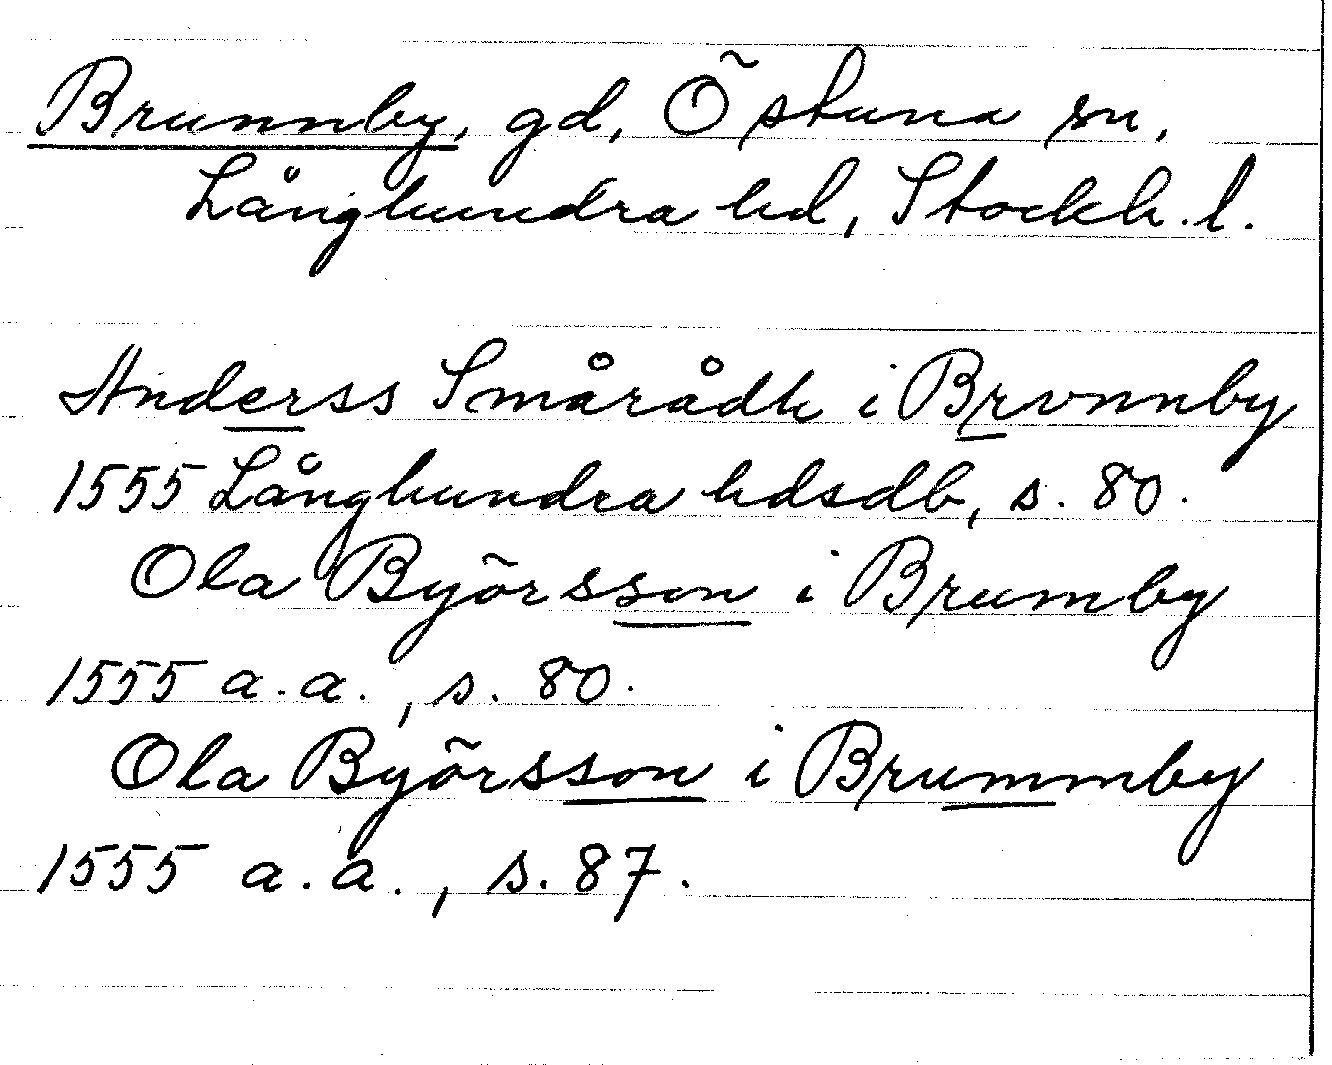 Brunnby, gd, Östuna sn,
Långhundra hd, Stockh. l.
Anderss Smårådh i Brvnnby
1555 Långhundra hdsdb, s. 80.
Ola Byörsson i Brumby
1555 a.a., s. 80.
Ola Byörsson i Brummby
1555 a.a., s. 87.